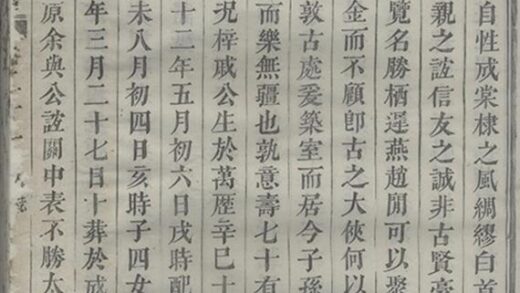 自性成棠棣之風綢繆白首
親之誼信友之誠非古賢豪
覽名勝栖遲燕趙閒可以聚
金而不顧卽古之大俠何以
敦古處爰築室而居今子孫
而樂無疆也孰意壽七十有
況梓戚公生於萬歷辛巳十
十二年五月初六日戌時配
未八月初四日亥時子四女
年三月二十七日十葬於戒
原余與公誼關中表不勝太